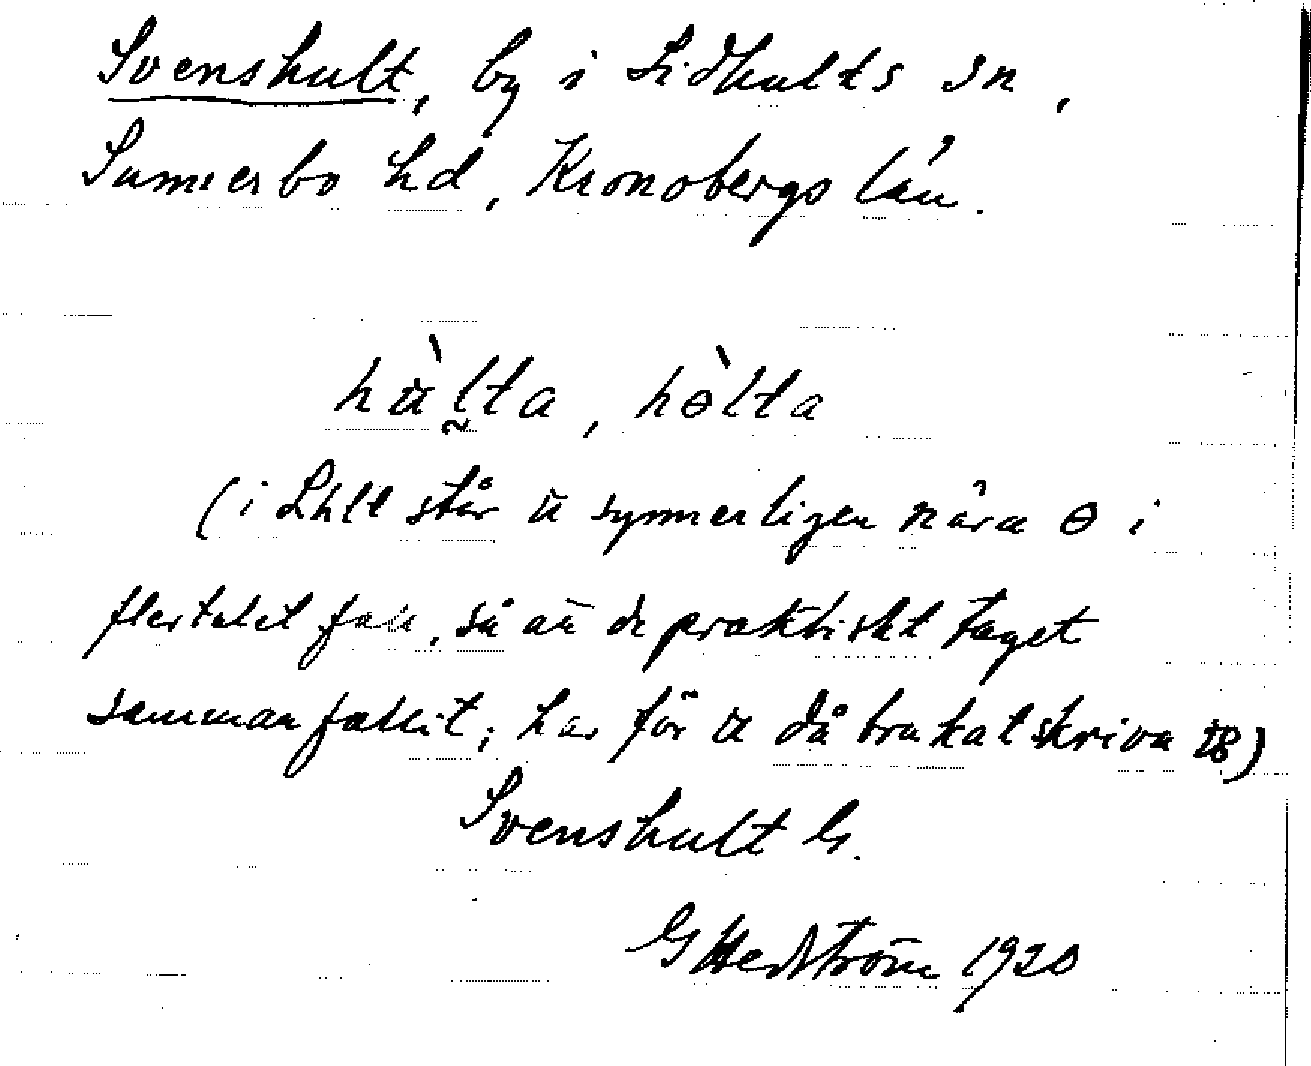 Svenshult, by i Lidhults sn,
Sunnerbo hd, Kronobergs län.
hu̇̀lta, hɵ̀lta
(i Lhlt står u synnerligen nära ɵ i
flertalet fall, så att de praktiskt taget
sammanfallit; har för u då brukat skriva)
Svenshult G.
G Hedström 1920